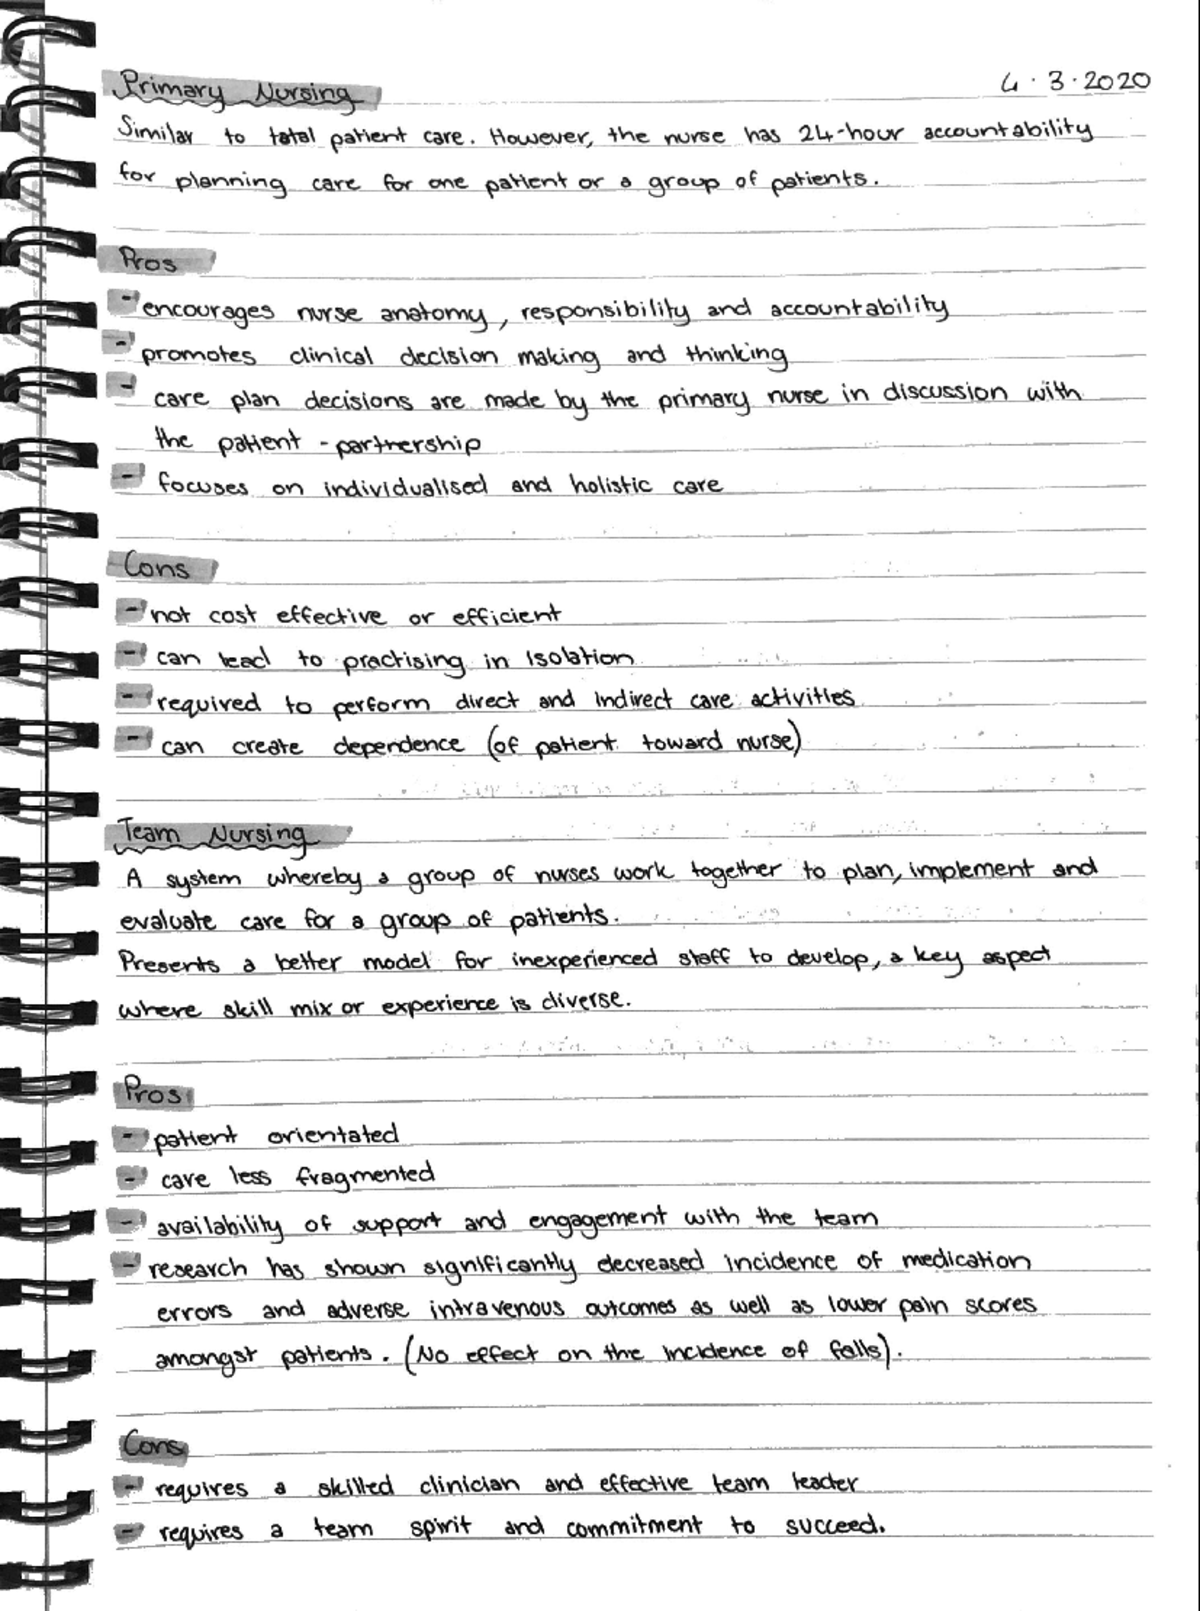 Primary Nursing 4.3.2020
Similar to total patient care. However, the nurse has 24-hour accountability
for planning care for one patient or a group of patients.
Pros
- encourages nurse anatomy, responsibility and accountability
- promotes clinical decision making and thinking
- care plan decisions are made by the primary nurse in discussion with
the patient - partnership
- focuses on individualised and holistic care
Cons
- not cost effective or efficient
- can lead to practising in isolation
- required to perform direct and indirect care activities
- can create dependence (of patient toward nurse)
Team Nursing
A system whereby a group of nurses work together to plan, implement and
evaluate care for a group of patients.
Presents a better model for inexperienced staff to develop, a key aspect
where skill mix or experience is diverse.
Pros
- patient orientated
- care less fragmented
- availability of support and engagement with the team
- research has shown significantly decreased incidence of medication
errors and adverse intravenous outcomes as well as lower pain scores
amongst patients. (No effect on the incidence of falls).
Cons
- requires a skilled clinician and effective team leader
- requires a team spirit and commitment to succeed.